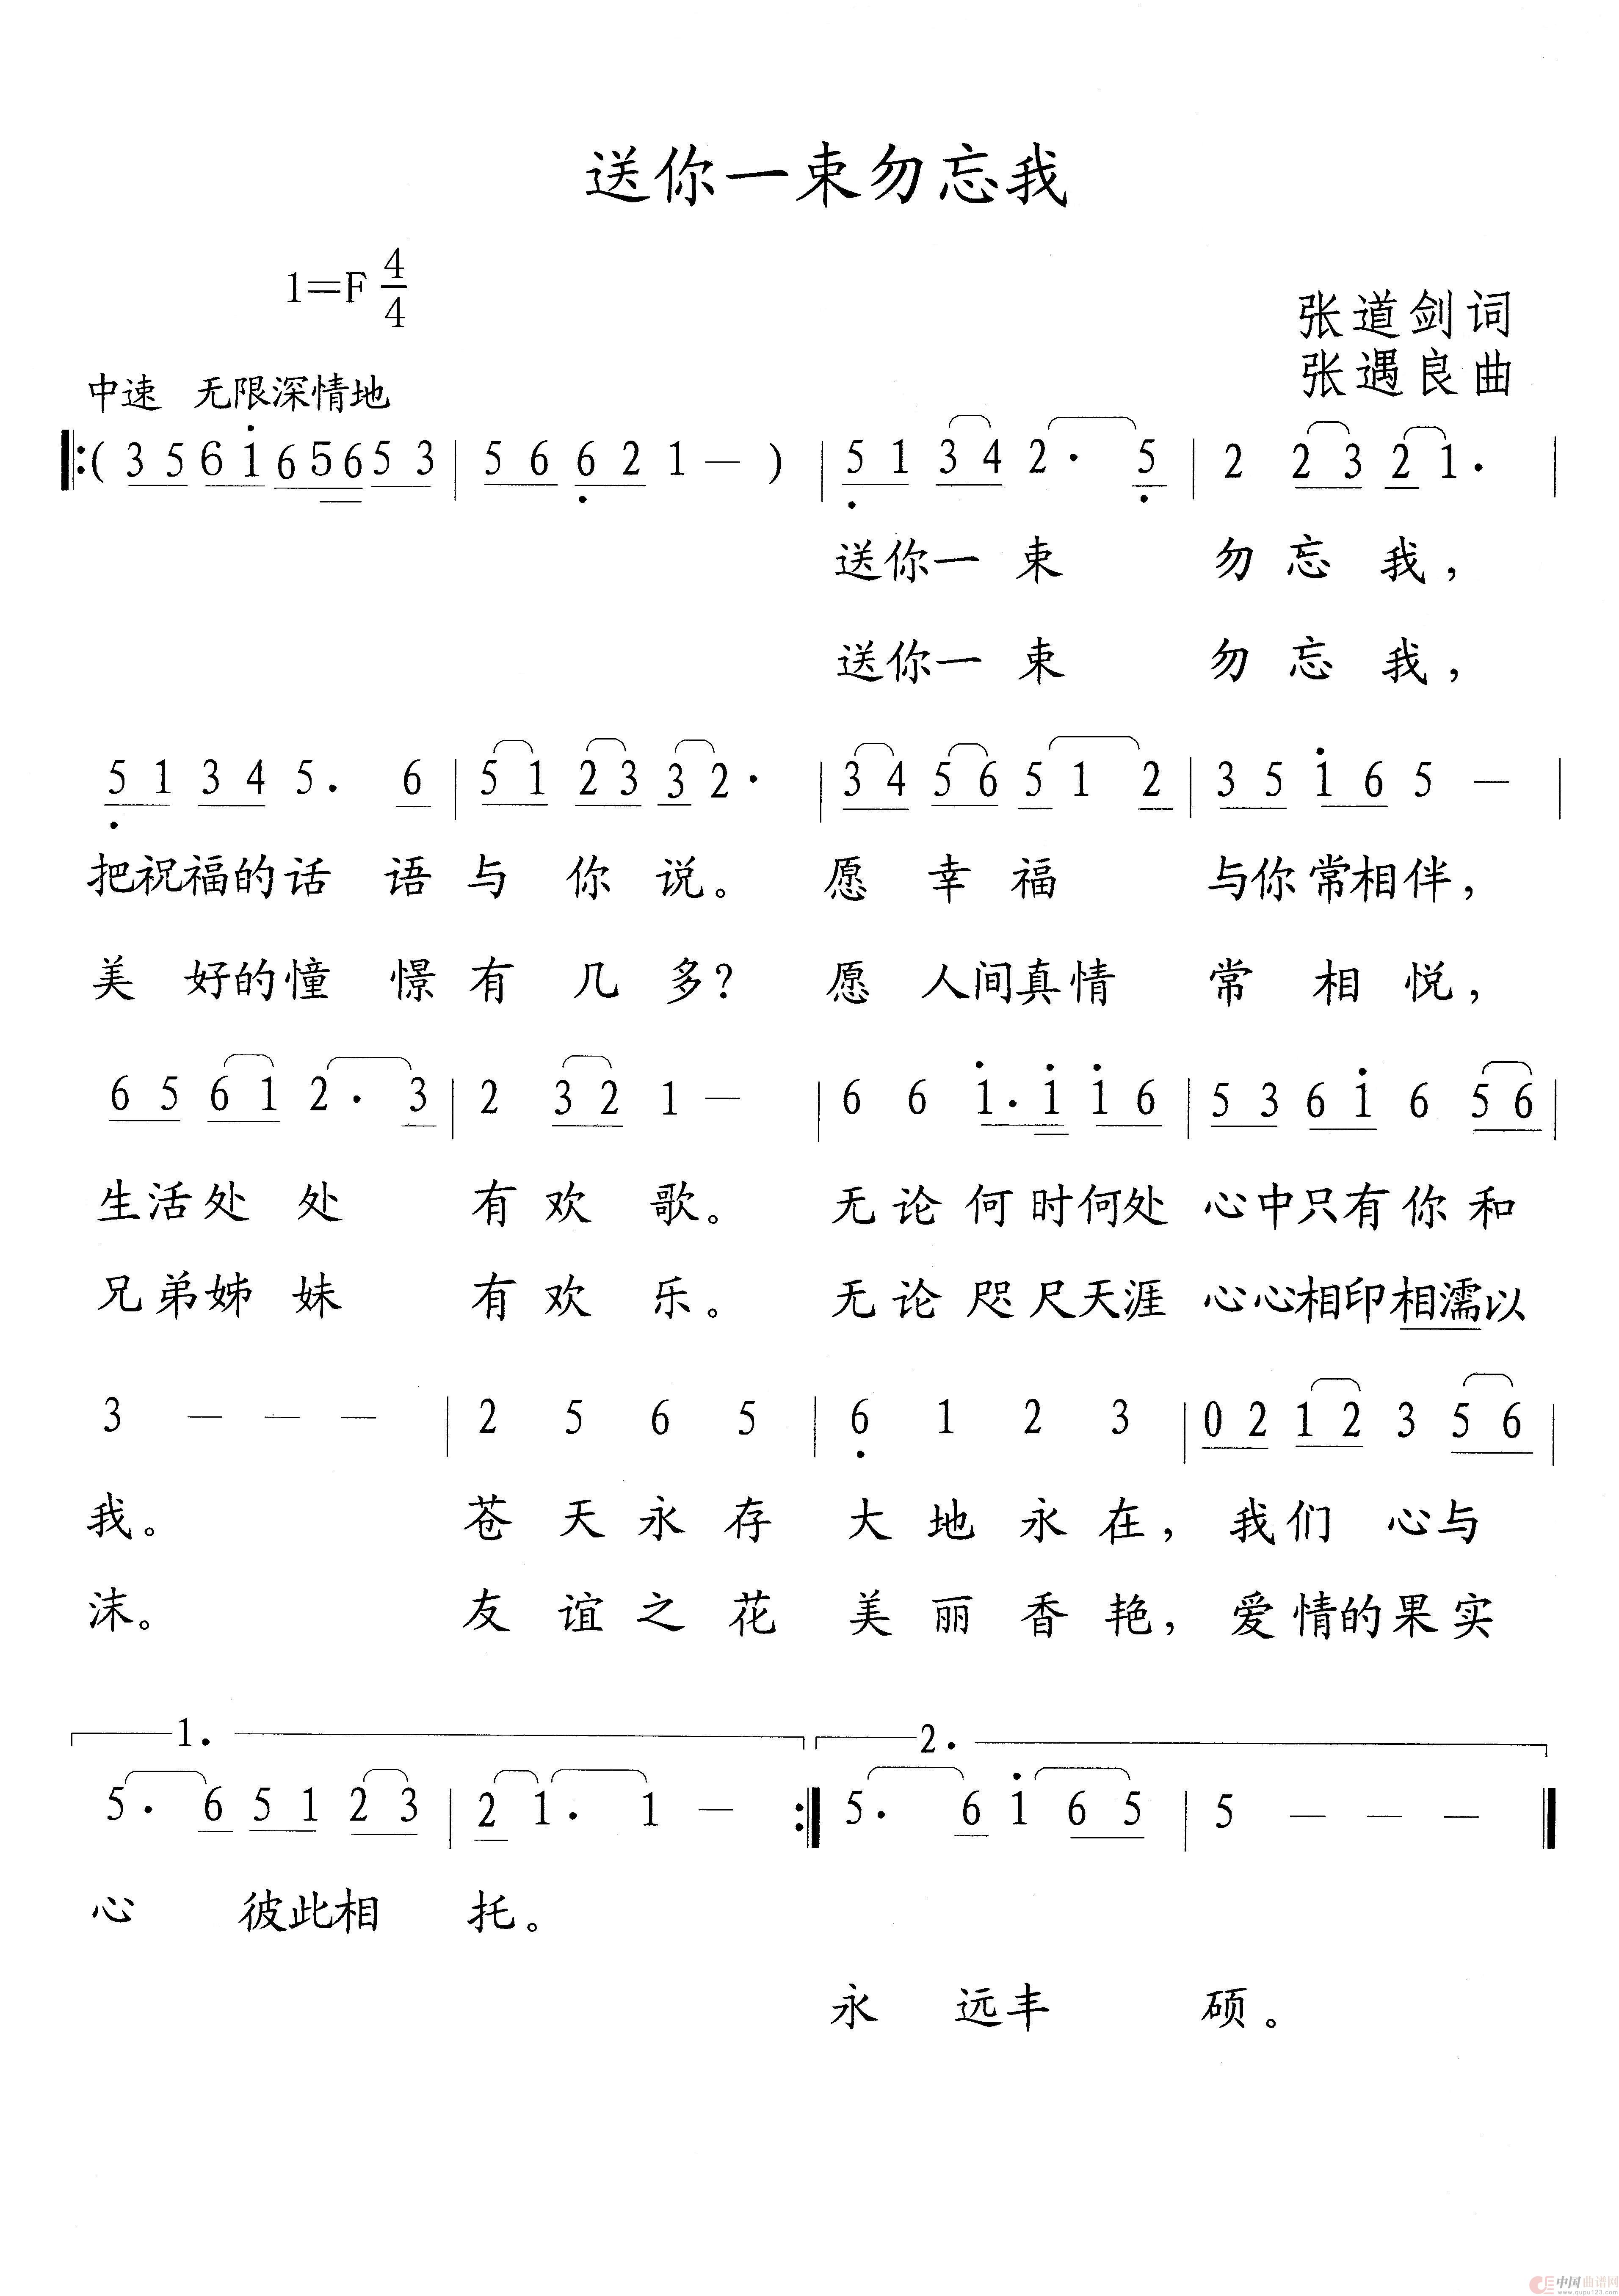 送你一束勿忘我
1=F 4/4
张道剑词
中速 无限深情地 张遇良曲
‖:( 3 5 6 i 6 5 6 5 3 | 5 6 6̣ 2 1 — ) | 5̣ 1 3 4 2 · 5̣ | 2 2 3 2 1 · |
送你一束 勿忘我，
送你一束 勿忘我，
5̣ 1 3 4 5 · 6 | 5 1 2 3 3 2 · | 3 4 5 6 5 1 2 | 3 5 i 6 5 — |
把祝福的话语与你说。愿幸福 与你常相伴，
美好的憧憬有几多？愿人间真情 常相悦，
6 5 6 1 2 · 3 | 2 3 2 1 — | 6 6 i · i i 6 | 5 3 6 i 6 5 6 |
生活处处 有欢歌。无论何时何处 心中只有你和
兄弟姊妹 有欢乐。无论咫尺天涯 心心相印相濡以
3 — — — | 2 5 6 5 | 6̣ 1 2 3 | 0 2 1 2 3 5 6 |
我。 苍天永存 大地永在，我们心与
沫。 友谊之花 美丽香艳，爱情的果实
1. 2.
5 · 6 5 1 2 3 | 2 1 · 1 — :‖ 5 · 6 i 6 5 | 5 — — — ‖
心 彼此相托。
永远丰 硕。
中国曲谱网
www.qupu123.com